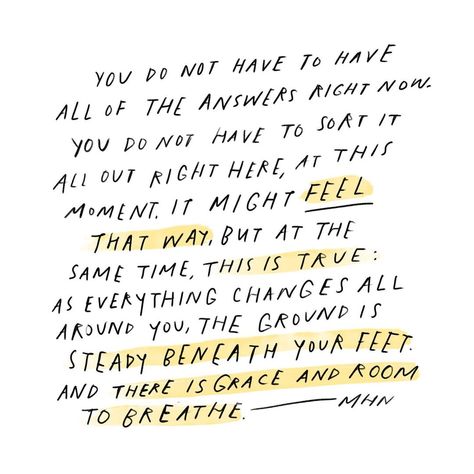 YOU DO NOT HAVE TO HAVE
ALL OF THE ANSWERS RIGHT NOW.
YOU DO NOT HAVE TO SORT IT
ALL OUT RIGHT HERE, AT THIS
MOMENT. IT MIGHT FEEL
THAT WAY, BUT AT THE
SAME TIME, THIS IS TRUE:
AS EVERYTHING CHANGES ALL
AROUND YOU, THE GROUND IS
STEADY BENEATH YOUR FEET.
AND THERE IS GRACE AND ROOM
TO BREATHE. — MHN